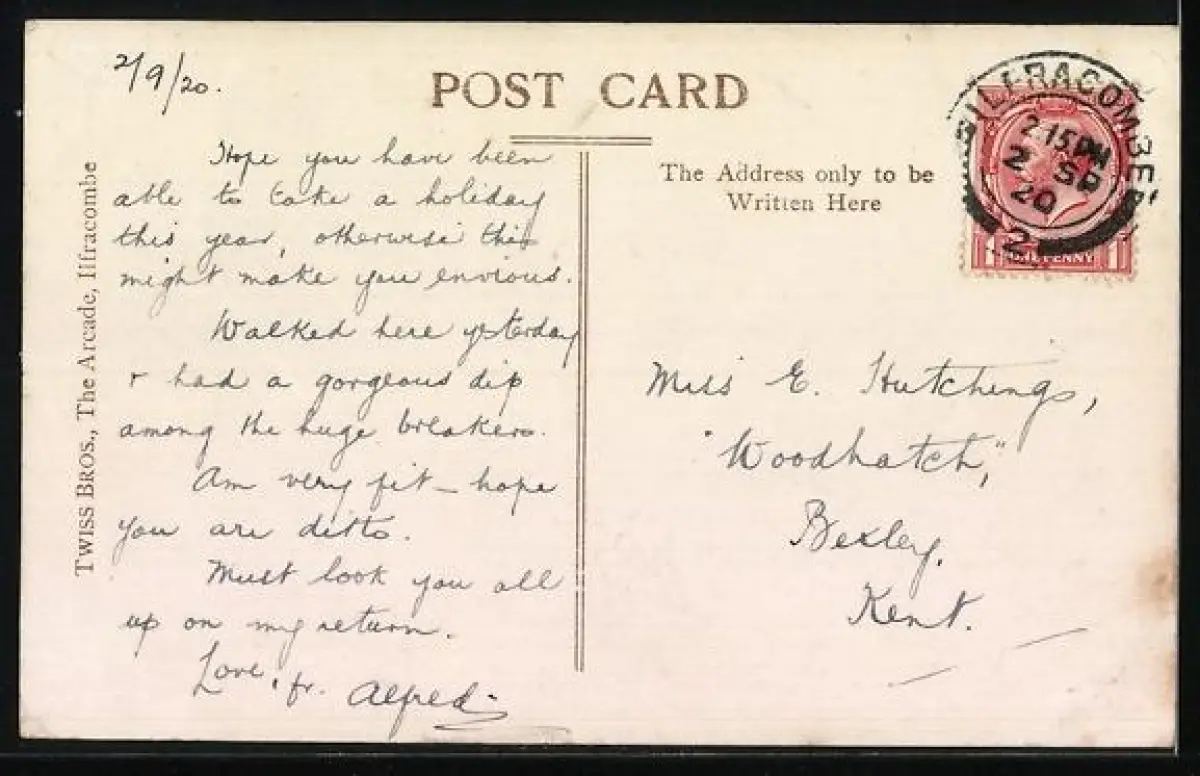 2/9/20.
POST CARD
Hope you have been
able to take a holiday
this year, otherwise this
might make you envious.
Walked here yesterday
& had a gorgeous dip
among the huge breakers.
Am very fit – hope
you are ditto.
Must look you all
up on my return.
Love, fr. Alfred
TWISS BROS., The Arcade, Ilfracombe
The Address only to be
Written Here
ILFRACOMBE
2 15 PM
2 SP
20
2
ONE PENNY
Miss E. Hutchings,
"Woodhatch,"
Bexley,
Kent.